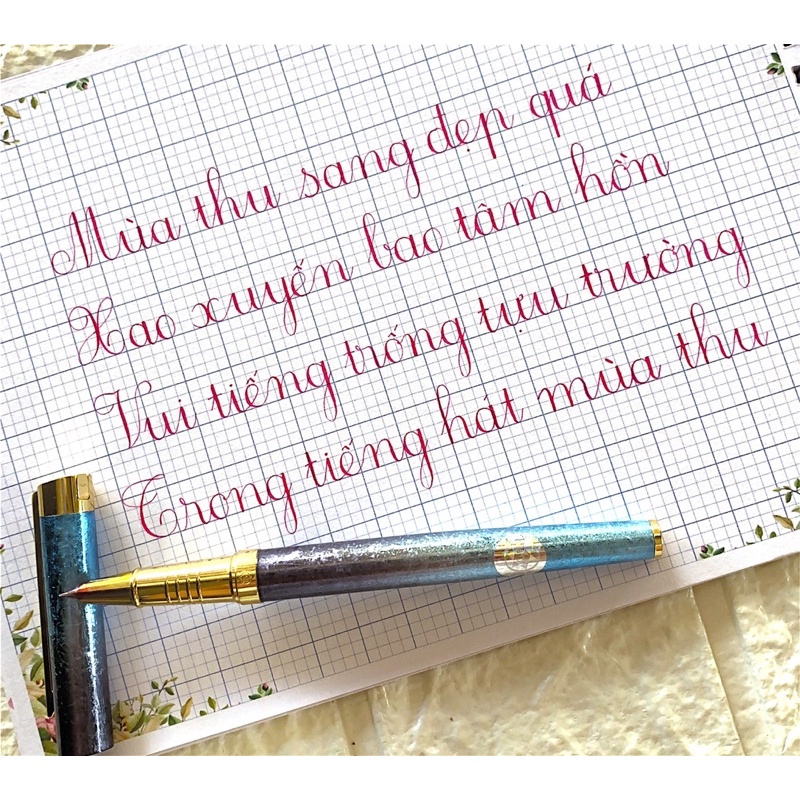 Mùa thu sang đẹp quá
Xao xuyến bao tâm hồn
Vui tiếng trống tựu trường
Trong tiếng hát mùa thu